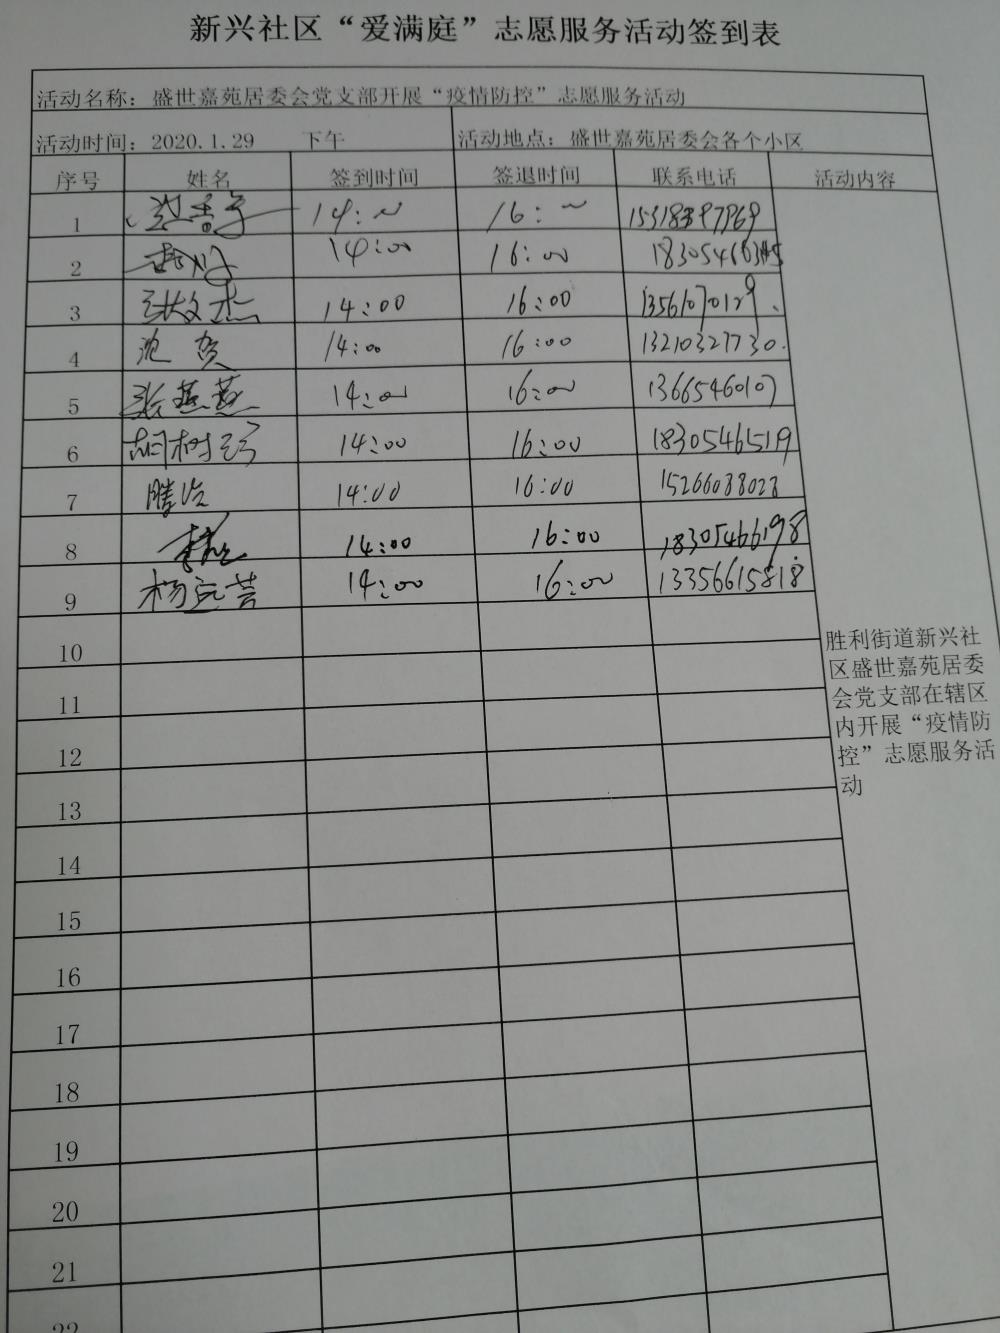 新兴社区“爱满庭”志愿服务活动签到表
活动名称：盛世嘉苑居委会党支部开展“疫情防控”志愿服务活动
活动时间：2020.1.29 下午 活动地点：盛世嘉苑居委会各个小区
序号 姓名 签到时间 签退时间 联系电话 活动内容
1 14:00 16:00
2 14:00 16:00
3 张文杰 14:00 16:00 13561070129
4 14:00 16:00 13210327730
5 张燕燕 14:00 16:00 13665460107
6 14:00 16:00 18305465119
7 14:00 16:00 15266038028
8 14:00 16:00 18305466198
9 杨远芸 14:00 16:00 13356615818
10
11
12
13
14
15
16
17
18
19
20
21
22
胜利街道新兴社
区盛世嘉苑居委
会党支部在辖区
内开展“疫情防
控”志愿服务活
动